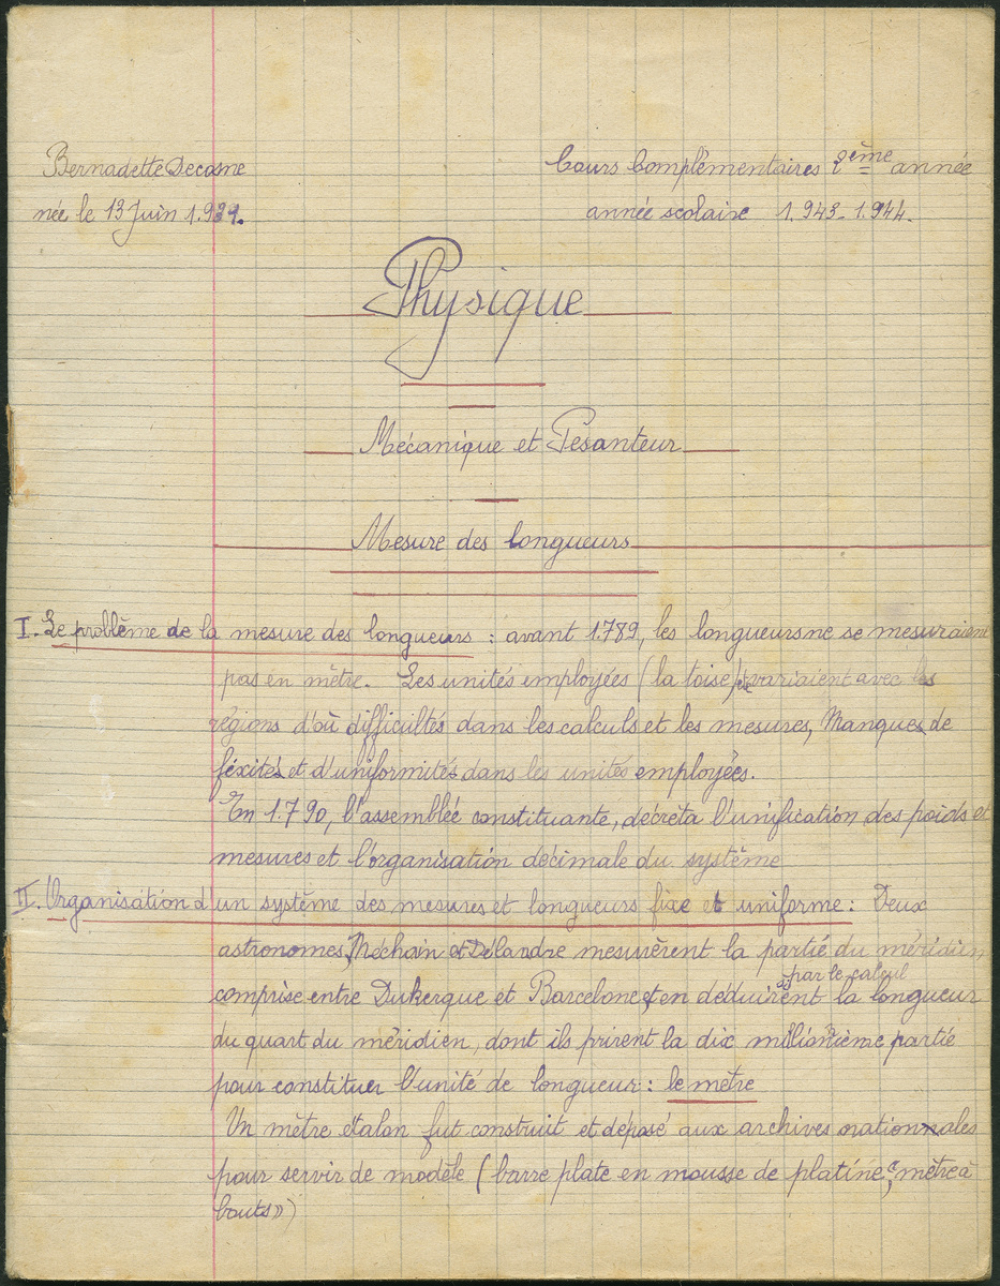 Bernadette Decosne
Cours Complémentaires 2ème année
née le 13 Juin 1.929.
année scolaire 1.943-1.944.
Physique
Mécanique et Pesanteur
Mesure des longueurs
I. Le problème de la mesure des longueurs : avant 1.789, les longueurs ne se mesuraient
pas en mètre. Les unités employées (la toise) variaient avec les
régions d'où difficultés dans les calculs et les mesures, Manques de
féxités et d'uniformités dans les unités employées.
En 1.790, l'assemblée constituante, décréta l'unification des poids et
mesures et l'organisation décimale du système
II. Organisation d'un système des mesures et longueurs fixe et uniforme : Deux
astronomes, Méchain et Délandre mesurèrent la partie du méridien
par le calcul
comprise entre Dukerque et Barcelone et en déduirent la longueur
du quart du méridien, dont ils prirent la dix millionième partie
pour constituer l'unité de longueur : le mètre
Un mètre étalon fut construit et déposé aux archives nationales
pour servir de modèle (barre plate en mousse de platine, "mètre à
bouts")